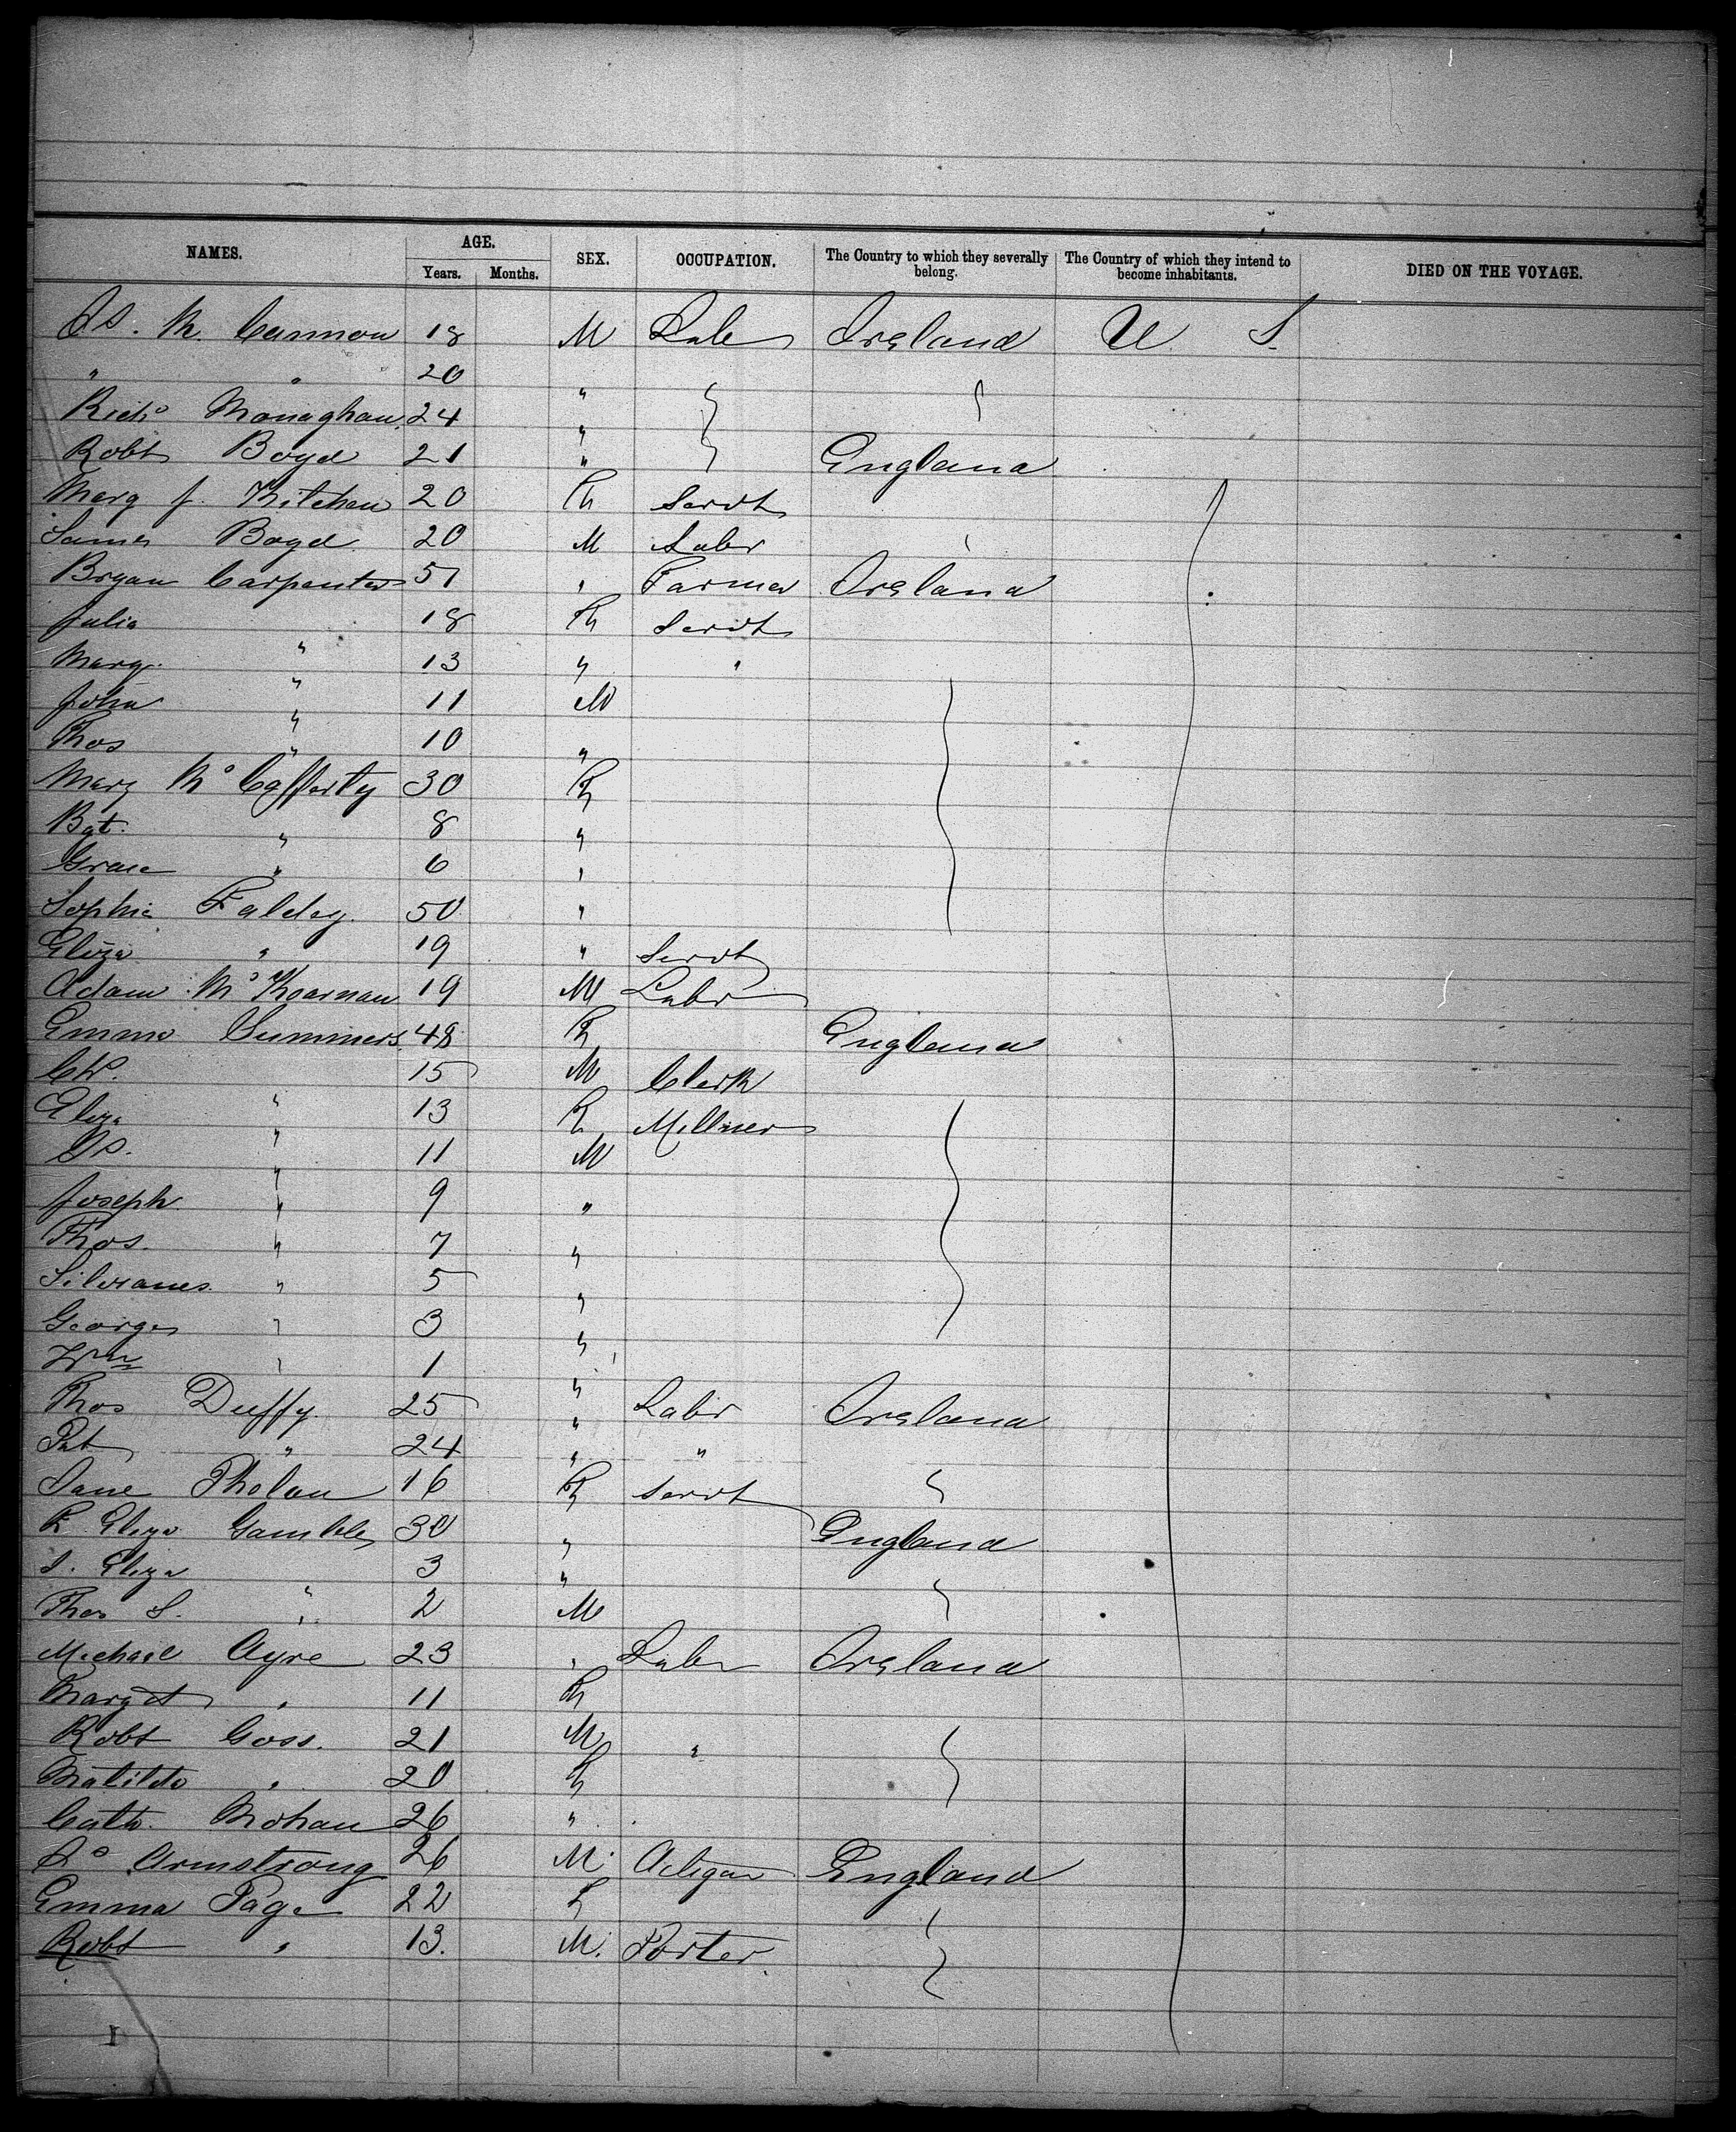 NAMES. AGE. SEX. OCCUPATION. The Country to which they severally belong. The Country of which they intend to become inhabitants. DIED ON THE VOYAGE.
Years. Months.
Js. M. Cannon 18 M Labr Ireland U S
" " 20 "
Richd Monaghan 24 "
Robt Boyd 21 " England
Marg J. Kitchen 20 F Servt
James Boyd 20 M Labr
Bryan Carpenter 51 " Farmer Ireland
Julia " 18 F Servt
Marg. " 13 " "
John " 11 M
Thos " 10 "
Marg Mc Cafferty 30 F
Bgt. " 8 "
Grace " 6 "
Sophia 50 "
Eliza " 19 " Servt
Adam Mc Kearnan 19 M Labr
Emma Summers 48 F England
Ch. " 15 M Clerk
Eliza " 13 F Milliner
Js. " 11 M
Joseph " 9 "
Thos. " 7 "
Silvanes " 5 "
George " 3 "
Wm " 1 "
Thos Duffy 25 " Labr Ireland
Pat " 24 " "
Jane Pholan 16 F Servt "
F Eliza Gamble 30 " England
J. Eliza " 3 "
Thos S. " 2 M
Michael Ayre 23 " Labr Ireland
Margt " 11 F
Robt Goss. 21 M "
Matilda " 20 F
Cath. Mohan 26 "
Armstrong 26 M England
Emma Page 22 F
Robt " 13. M. Porter.